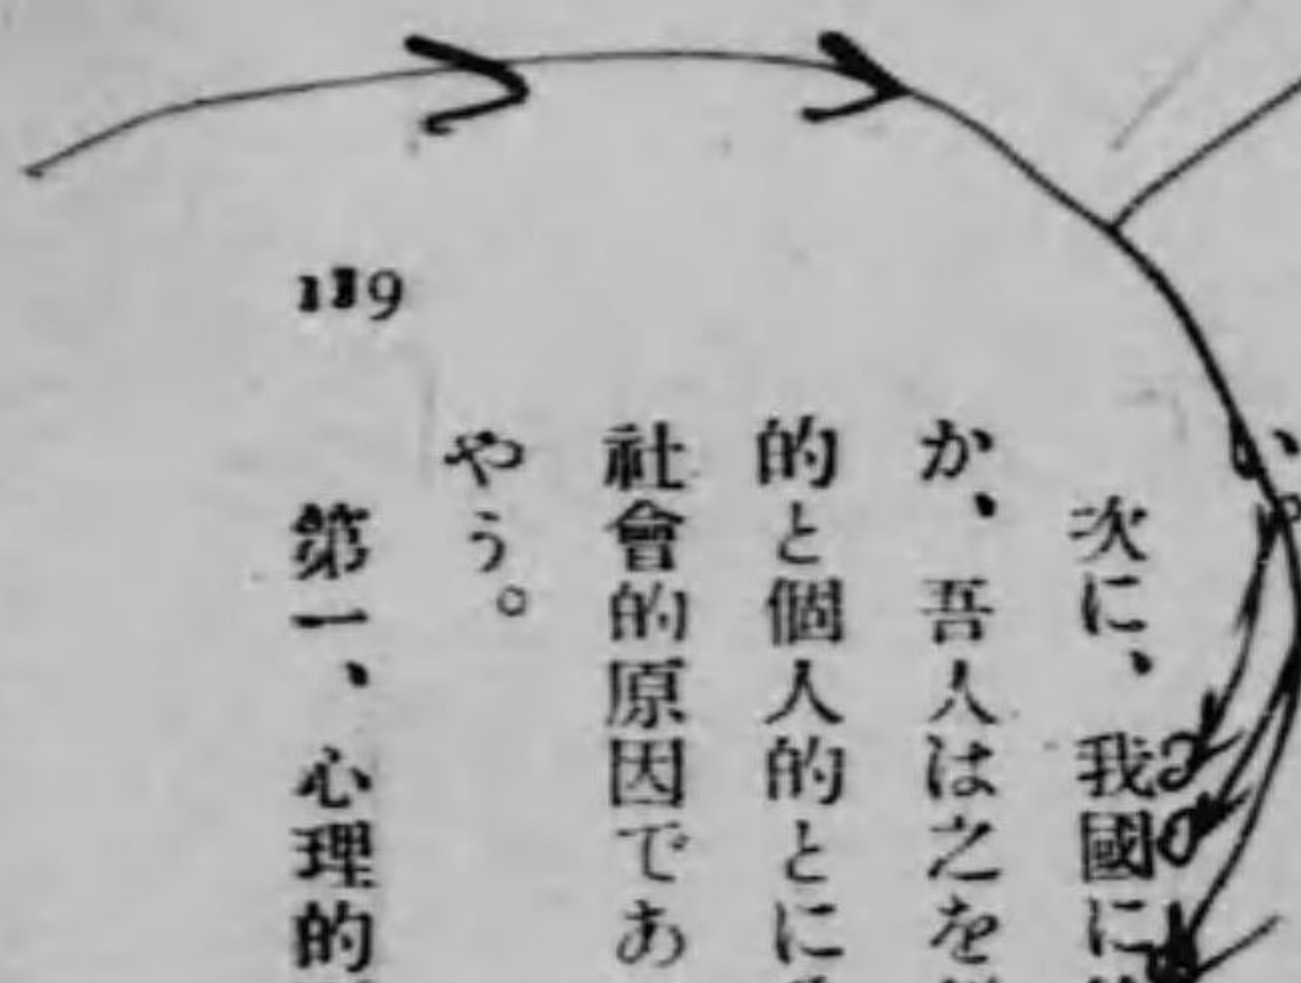 次に、我國に
か、吾人は之を
的と個人的とに
社會的原因であ
やう。
第一、心理的